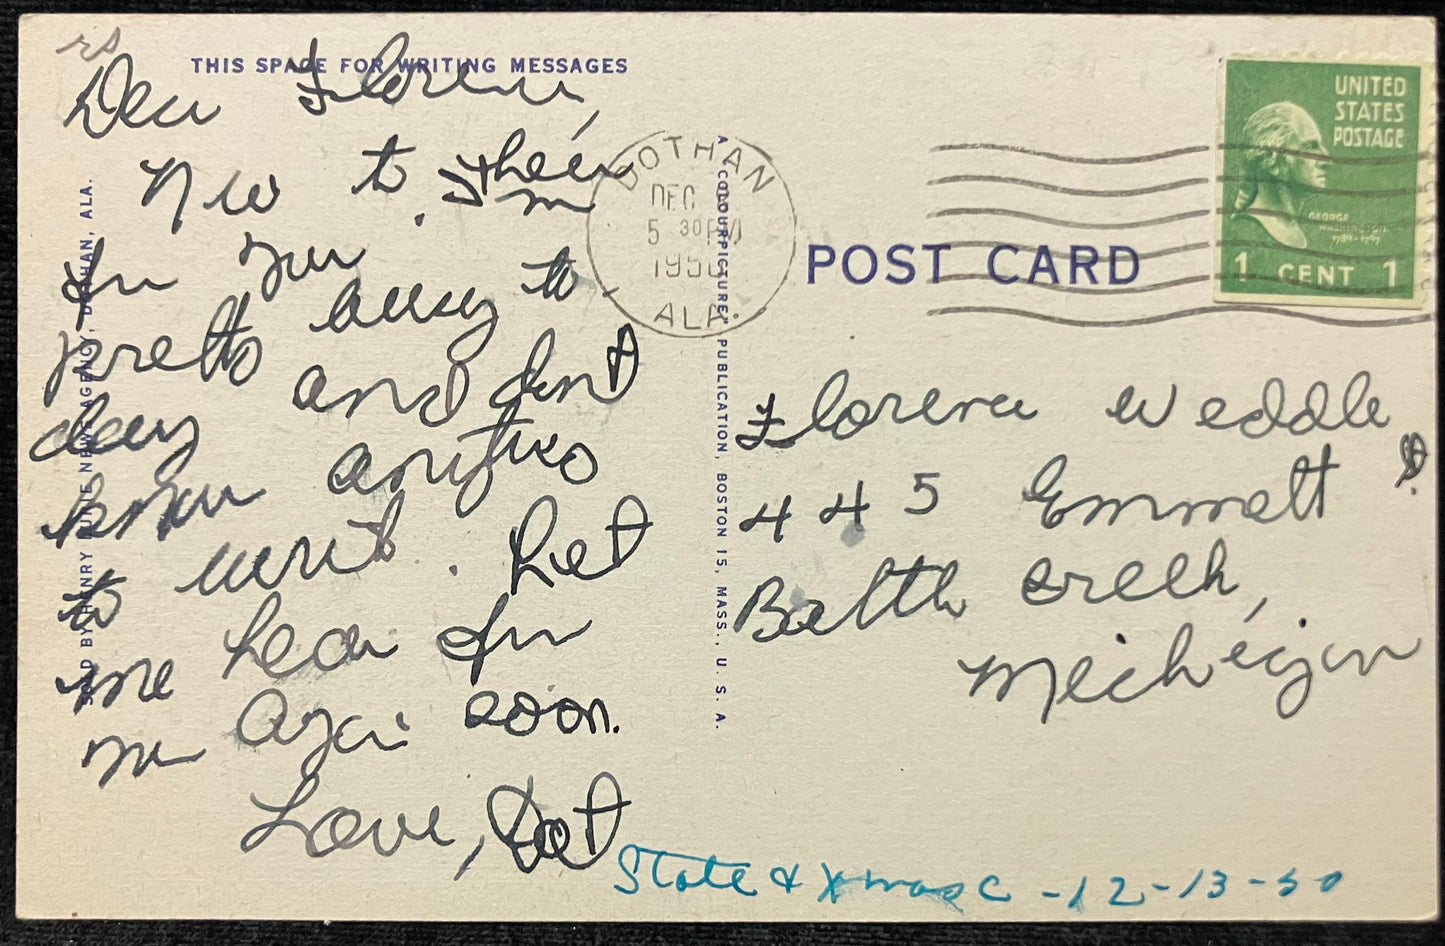 THIS SPACE FOR WRITING MESSAGES
Dear Florena,
I'm
for you.
pretty busy to
day and dont
know anything
to write. Let
me hear from
you again soon.
Love, Dot
SOLD BY HENRY NEWS AGENCY, DOTHAN, ALA.
A COLOURPICTURE PUBLICATION, BOSTON 15, MASS., U. S. A.
DOTHAN
DEC
5 30 PM
1950
ALA.
POST CARD
UNITED
STATES
POSTAGE
GEORGE
WASHINGTON
1789-1797
1 CENT 1
Florena Weddle
445 Emmett St.
Battle Creek,
Michigan
State & Xmas C -12-13-50